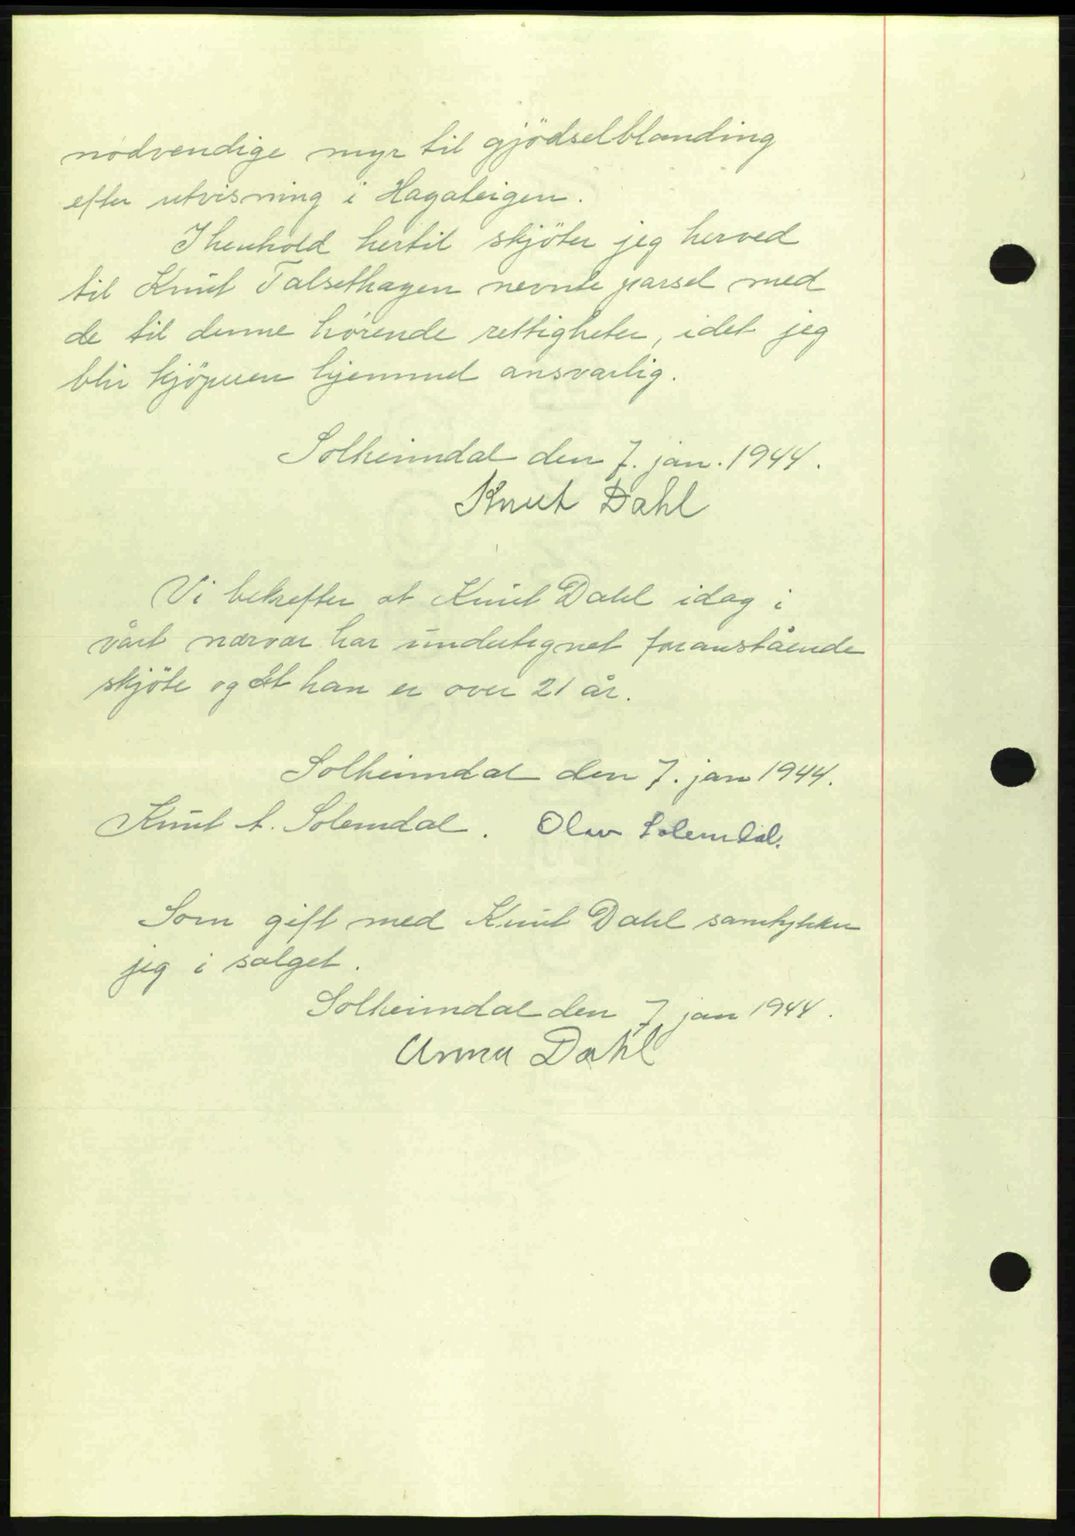 nødvendige myr til gjödselblanding
efter utvisning i Hagateigen.
I henhold hertil skjöter jeg herved
til Knut Talsethagen nevnte parsel med
de til denne hörende rettigheter, idet jeg
blir kjöperen hjemmel ansvarlig.
Solheimdal den 7. jan. 1944.
Knut Dahl
Vi bekrefter at Knut Dahl idag i
vårt nærvær har undertegnet foranstående
skjöte og at han er over 21 år.
Solheimdal den 7. jan 1944.
Knut A. Solemdal. Olav Solemdal.
Som gift med Knut Dahl samtykker
jeg i salget.
Solheimdal den 7 jan 1944.
Anna Dahl